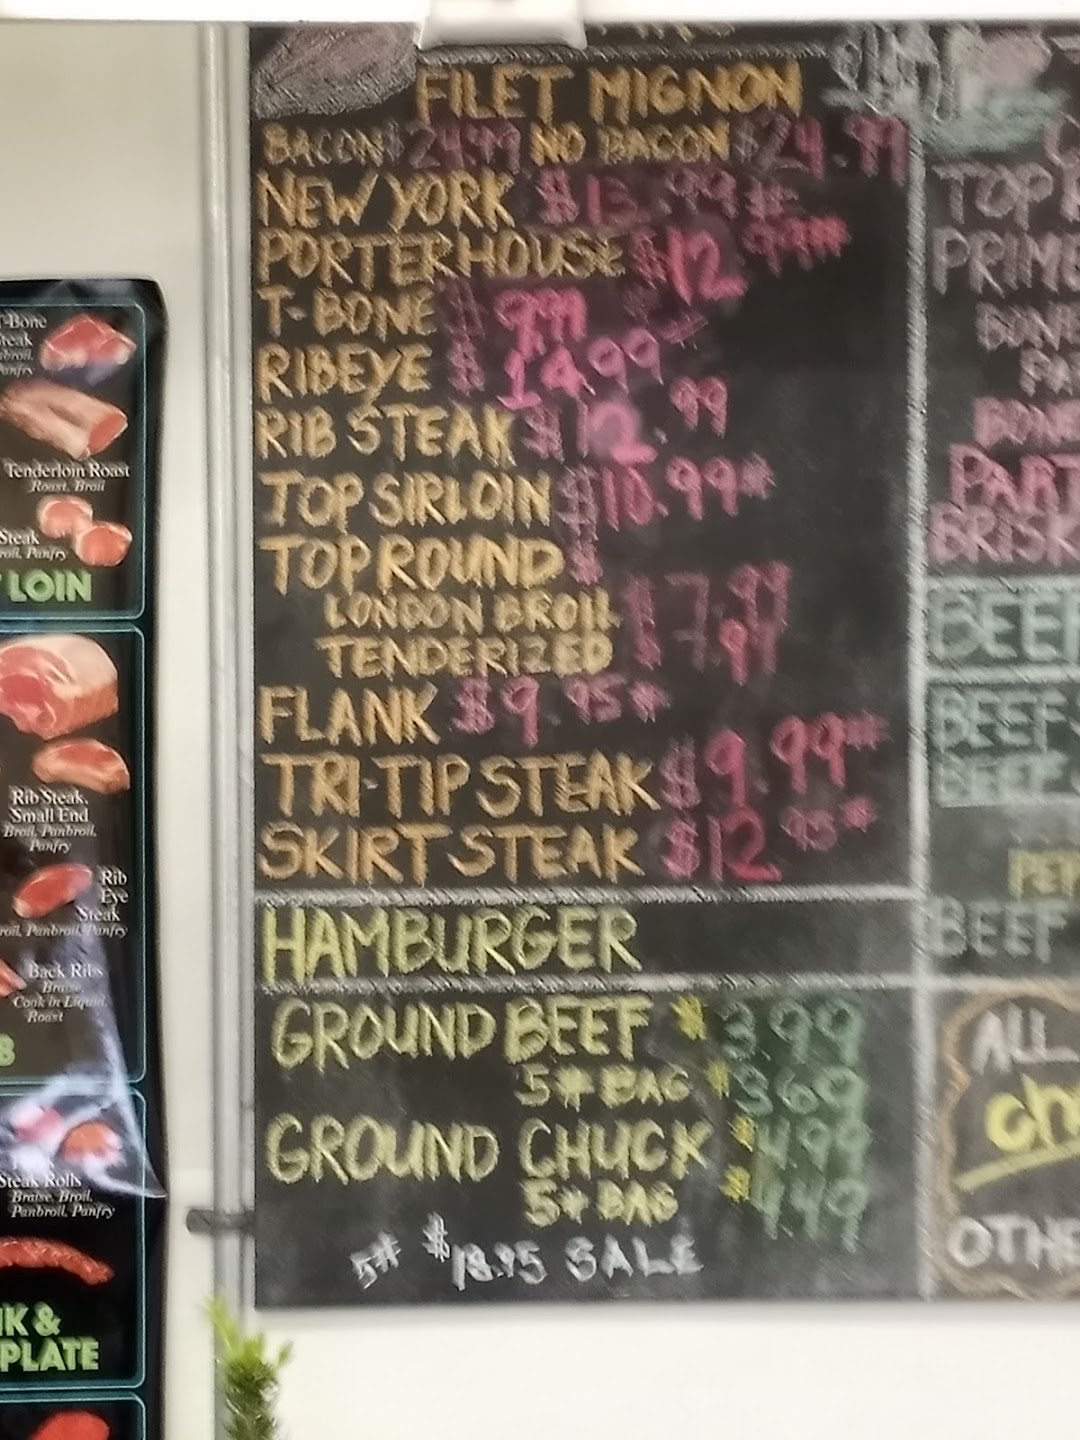 FILET MIGNON
BACON $24.99 NO BACON $24.99
NEW YORK $13.99#
PORTERHOUSE $12.99#
T-BONE $9.99
RIBEYE $14.99#
RIB STEAK $12.99
TOP SIRLOIN $10.99#
TOP ROUND $
LONDON BROIL $7.99
TENDERIZED $
FLANK $9.95#
TRI-TIP STEAK $9.99#
SKIRT STEAK $12.95#
HAMBURGER
GROUND BEEF $3.99
5# BAG $3.69
GROUND CHUCK $4.99
5# BAG $4.49
5# $18.95 SALE
T-Bone
Steak
Panfry
Tenderloin Roast
Roast, Broil
Steak
Broil, Panfry
LOIN
Rib Steak,
Small End
Broil, Panbroil,
Panfry
Rib
Eye
Steak
Broil, Panbroil, Panfry
Back Ribs
Braise,
Cook in Liquid,
Roast
Steak Rolls
Braise, Broil,
Panbroil, Panfry
&
PLATE
TOP
BEEF
BEEF
BEEF
BEEF
ALL